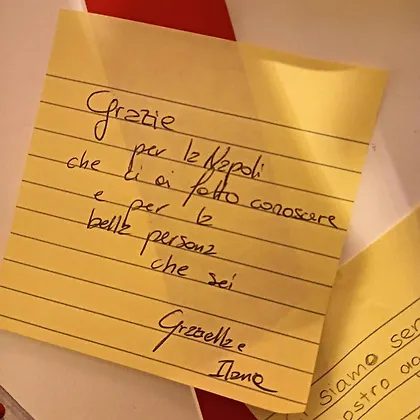 Grazie
per la Napoli
che ci ai fatto conoscere
e per la
bella persona
che sei
Graziella e
Ilana
siamo